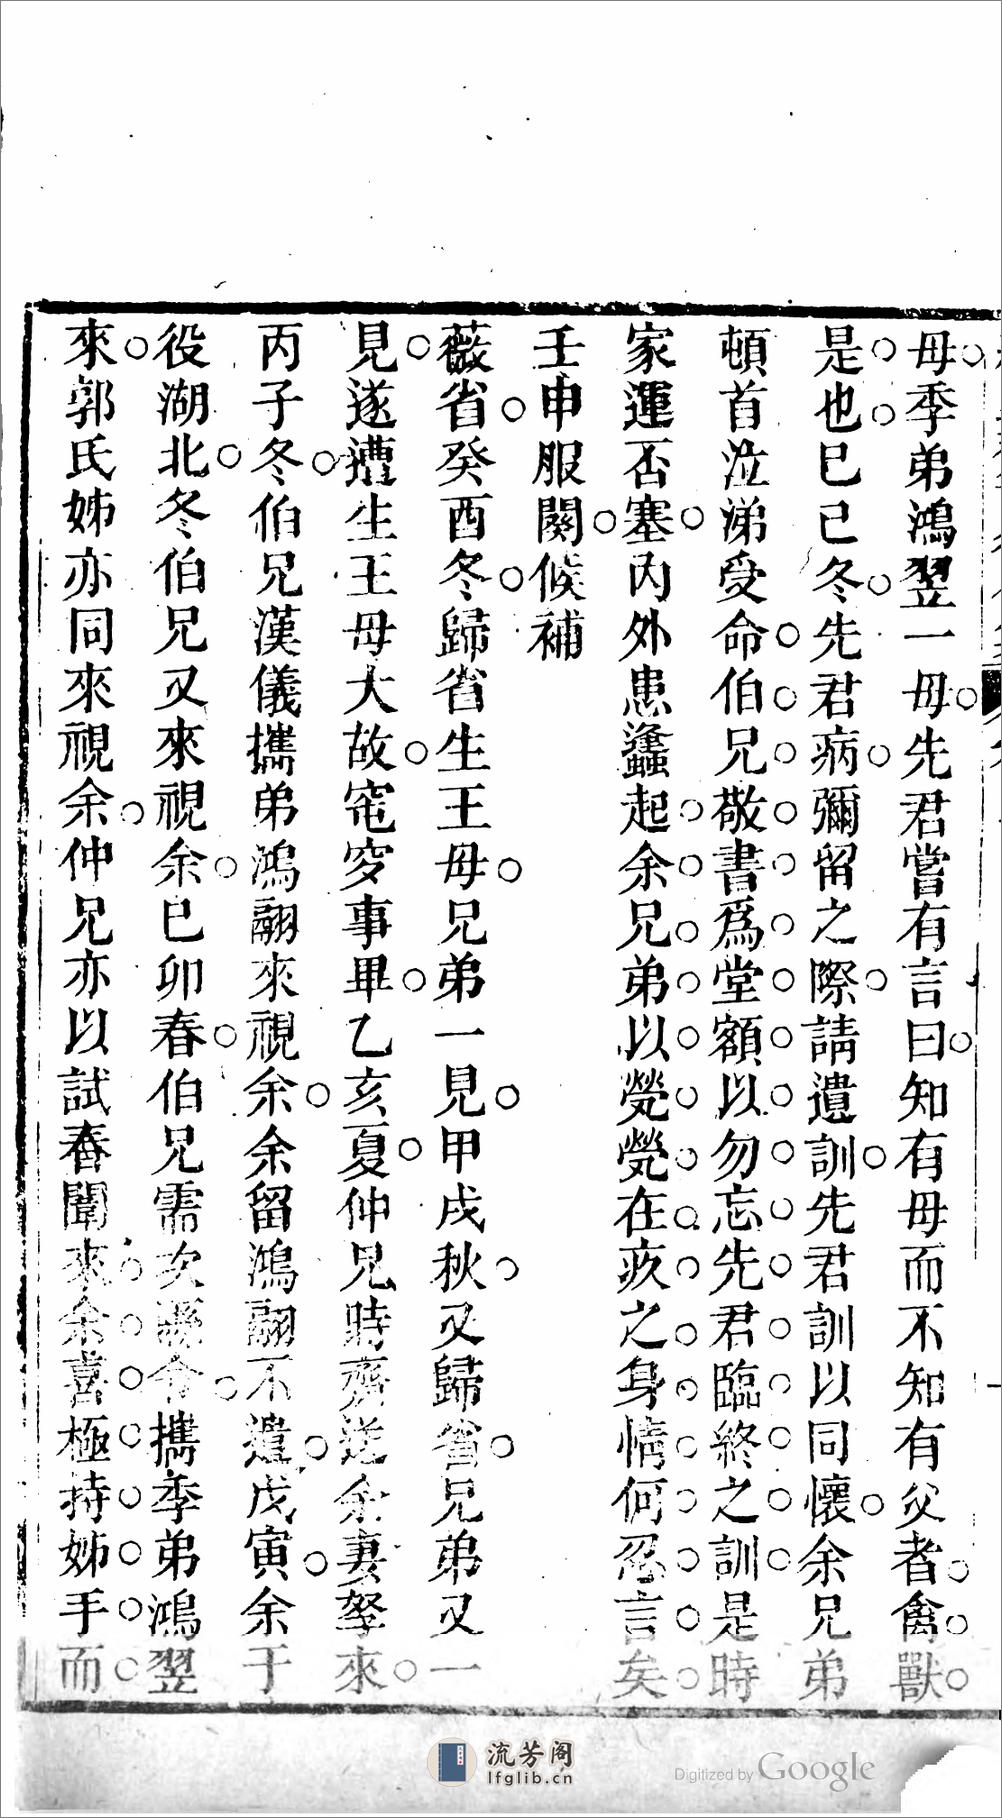 母季弟鴻翌一母先君嘗有言曰知有母而不知有父者禽獸
是也己巳冬先君病彌留之際請遺訓先君訓以同懷余兄弟
頓首泣涕受命伯兄敬書爲堂額以勿忘先君臨終之訓是時
家運否塞內外患蠭起余兄弟以煢煢在疚之身情何忍言矣
壬申服闋候補
薇省癸酉冬歸省生王母兄弟一見甲戌秋又歸省兄弟又一
見遂遭生王母大故窀穸事畢乙亥夏仲兄時齋送余妻孥來
丙子冬伯兄漢儀攜弟鴻翮來視余余留鴻翮不遣戊寅余于
役湖北冬伯兄又來視余己卯春伯兄需次縣令攜季弟鴻翌
來郭氏姊亦同來視余仲兄亦以試春闈來余喜極持姊手而
流芳阁
lfglib.cn
Digitized by Google